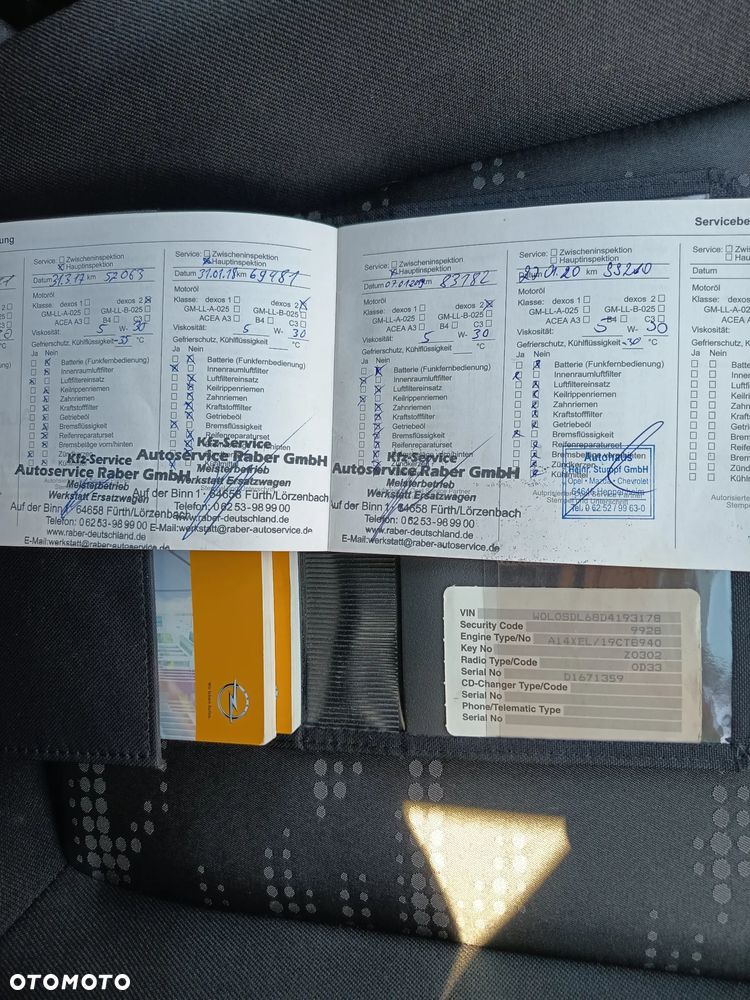 Servicebe
Service: Zwischeninspektion
Hauptinspektion
Datum 31.3.17 km 52063
Motoröl
Klasse: dexos 1 dexos 2
GM-LL-A-025 GM-LL-B-025
ACEA A3 B4 C3
Viskosität: 5 W- 30
Gefrierschutz, Kühlflüssigkeit -35 °C
Ja Nein
Batterie (Funkfernbedienung)
Innenraumluftfilter
Luftfiltereinsatz
Keilrippenriemen
Zahnriemen
Kraftstofffilter
Getriebeöl
Bremsflüssigkeit
Reifenreparaturset
Bremsbeläge vorn/hinten
Kfz-Service
Autoservice Raber GmbH
Meisterbetrieb
Werkstatt Ersatzwagen
Telefon: 0 62 53 - 98 99 00
www.raber-deutschland.de
E-Mail:werkstatt@raber-autoservice.de
Service: Zwischeninspektion
Hauptinspektion
Datum 31.01.18 km 69481
Motoröl
Klasse: dexos 1 dexos 2
GM-LL-A-025 GM-LL-B-025
ACEA A3 B4 C3
Viskosität: 5 W- 30
Gefrierschutz, Kühlflüssigkeit °C
Ja Nein
Batterie (Funkfernbedienung)
Innenraumluftfilter
Luftfiltereinsatz
Keilrippenriemen
Zahnriemen
Kraftstofffilter
Getriebeöl
Bremsflüssigkeit
Reifenreparaturset
Kfz-Service
Autoservice Raber GmbH
Meisterbetrieb
Werkstatt Ersatzwagen
Auf der Binn 1 · 64658 Fürth/Lörzenbach
Telefon: 0 62 53 - 98 99 00
www.raber-deutschland.de
E-Mail:werkstatt@raber-autoservice.de
Service: Zwischeninspektion
Hauptinspektion
Datum km 83182
Motoröl
Klasse: dexos 1 dexos 2
GM-LL-A-025 GM-LL-B-025
ACEA A3 B4 C3
Viskosität: 5 W- 30
Gefrierschutz, Kühlflüssigkeit °C
Ja Nein
Batterie (Funkfernbedienung)
Innenraumluftfilter
Luftfiltereinsatz
Keilrippenriemen
Zahnriemen
Kraftstofffilter
Getriebeöl
Bremsflüssigkeit
Reifenreparaturset
Kfz-Service
Autoservice Raber GmbH
Meisterbetrieb
Werkstatt Ersatzwagen
64658 Fürth/Lörzenbach
Telefon: 0 62 53 - 98 99 00
www.raber-deutschland.de
E-Mail:werkstatt@raber-autoservice.de
Service: Zwischeninspektion
Hauptinspektion
Datum 27.01.20 km
Motoröl
Klasse: dexos 1 dexos 2
GM-LL-A-025 GM-LL-B-025
ACEA A3 B4 C3
Viskosität: 5 W- 30
Gefrierschutz, Kühlflüssigkeit -30 °C
Ja Nein
Batterie (Funkfernbedienung)
Innenraumluftfilter
Luftfiltereinsatz
Keilrippenriemen
Zahnriemen
Kraftstofffilter
Getriebeöl
Bremsflüssigkeit
Reifenreparaturset
Bremsbeläge vorn/hinten
Zündkerzen
Kühlmittel
Autohaus
Heinr. Stumpf GmbH
Opel · Mazda · Chevrolet
64646 Heppenheim
Tel. 0 62 52 / 99 63-0
VIN W0L0SDL68D4193178
Security Code 9928
Engine Type/No A14XEL/19CT8940
Key No Z0302
Radio Type/Code 0D33
Serial No D1671359
CD-Changer Type/Code
Serial No
Phone/Telematic Type
Serial No
OTOMOTO